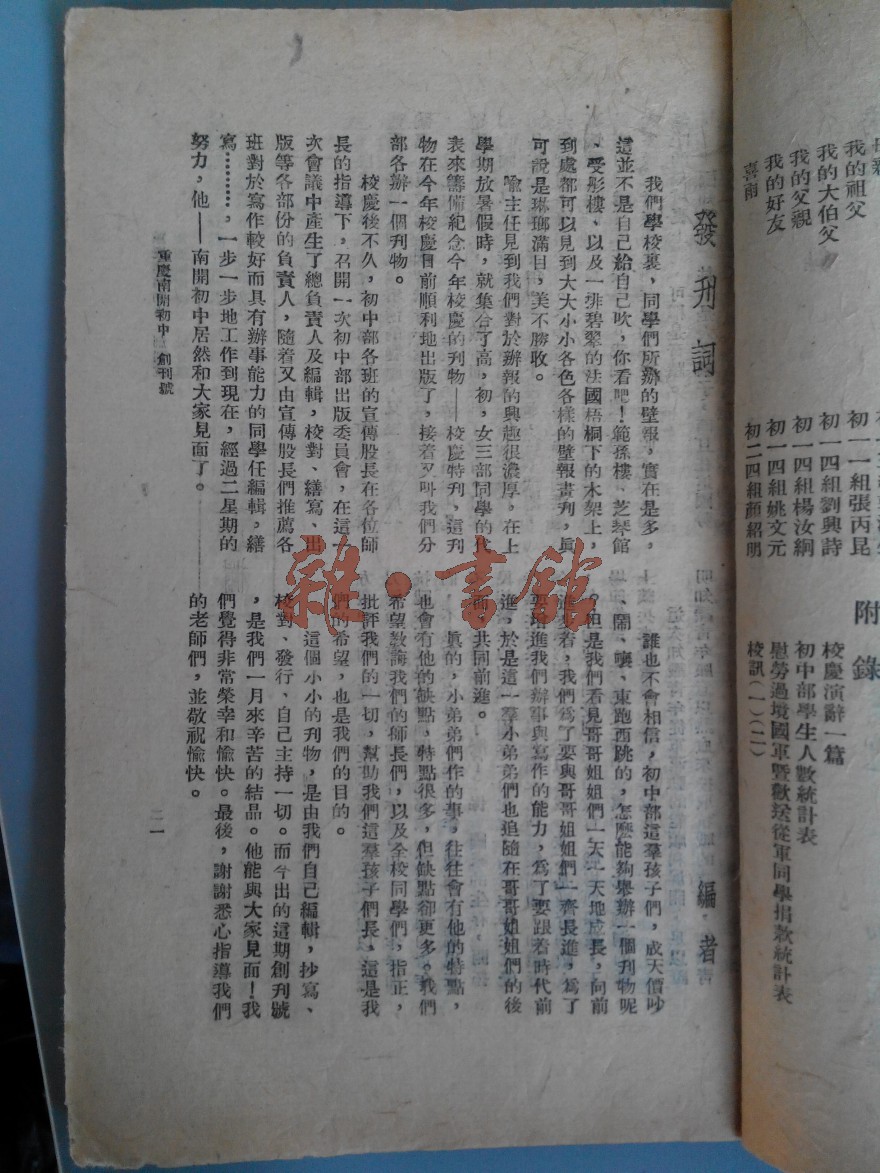 我的祖父
我的大伯父
我的父親
我的好友
喜雨
初一一組張丙昆
初一四組劉興詩
初一四組楊汝絅
初一四組姚文元
初二四組顏紹明
附錄
校慶演辭一篇
初中部學生人數統計表
慰勞過境國軍暨歡送從軍同學捐款統計表
校訊(一)(二)
發刊詞
編者
我們學校裏,同學們所辦的壁報,實在是多,
這並不是自己給自己吹,你看吧!範孫樓、芝琴館
、受彤樓、以及一排碧翠的法國梧桐下的木架上,
到處都可以見到大大小小各色各樣的壁報畫刋,眞
可說是琳瑯滿目,美不勝收。
喻主任見到我們對於辦報的興趣很濃厚,在上
學期放暑假時,就集合了高,初,女三部同學的代
表來籌備紀念今年校慶的刋物——校慶特刋,這刋
物在今年校慶日前順利地出版了,接着又叫我們分
部各辦一個刋物。
校慶後不久,初中部各班的宣傳股長在各位師
長的指導下,召開一次初中部出版委員會,在這一
次會議中產生了總負責人及編輯,校對、繕寫、出
版等各部份的負責人,隨着又由宣傳股長們推薦各
班對於寫作較好而具有辦事能力的同學任編輯,繕
寫…………,一步一步地工作到現在,經過二星期的
努力,他——南開初中居然和大家見面了。
誰也不會相信,初中部這羣孩子們,成天價吵
、鬧、嚷、東跑西跳的,怎麼能夠舉辦一個刋物呢
。但是我們看見哥哥姐姐們一天一天地成長,向前
進步着,我們爲了要與哥哥姐姐們一齊長進,爲了
要增進我們辦事與寫作的能力,爲了要跟着時代前
進,於是這一羣小弟弟們也追隨在哥哥姐姐們的後
面,共同前進。
眞的,小弟弟們作的事,往往會有他的特點,
也會有他的缺點,特點很多,但缺點卻更多。我們
希望敎誨我們的師長們,以及全校同學們,指正,
批評我們的一切,幫助我們這羣孩子們長,這是我
們的希望,也是我們的目的。
這個小小的刋物,是由我們自己編輯,抄寫、
校對、發行、自己主持一切。而今出的這期創刋號
,是我們一月來辛苦的結晶。他能與大家見面!我
們覺得非常榮幸和愉快。最後,謝謝悉心指導我們
的老師們,並敬祝愉快。
重慶南開初中 創刊號
二一
雜·書館